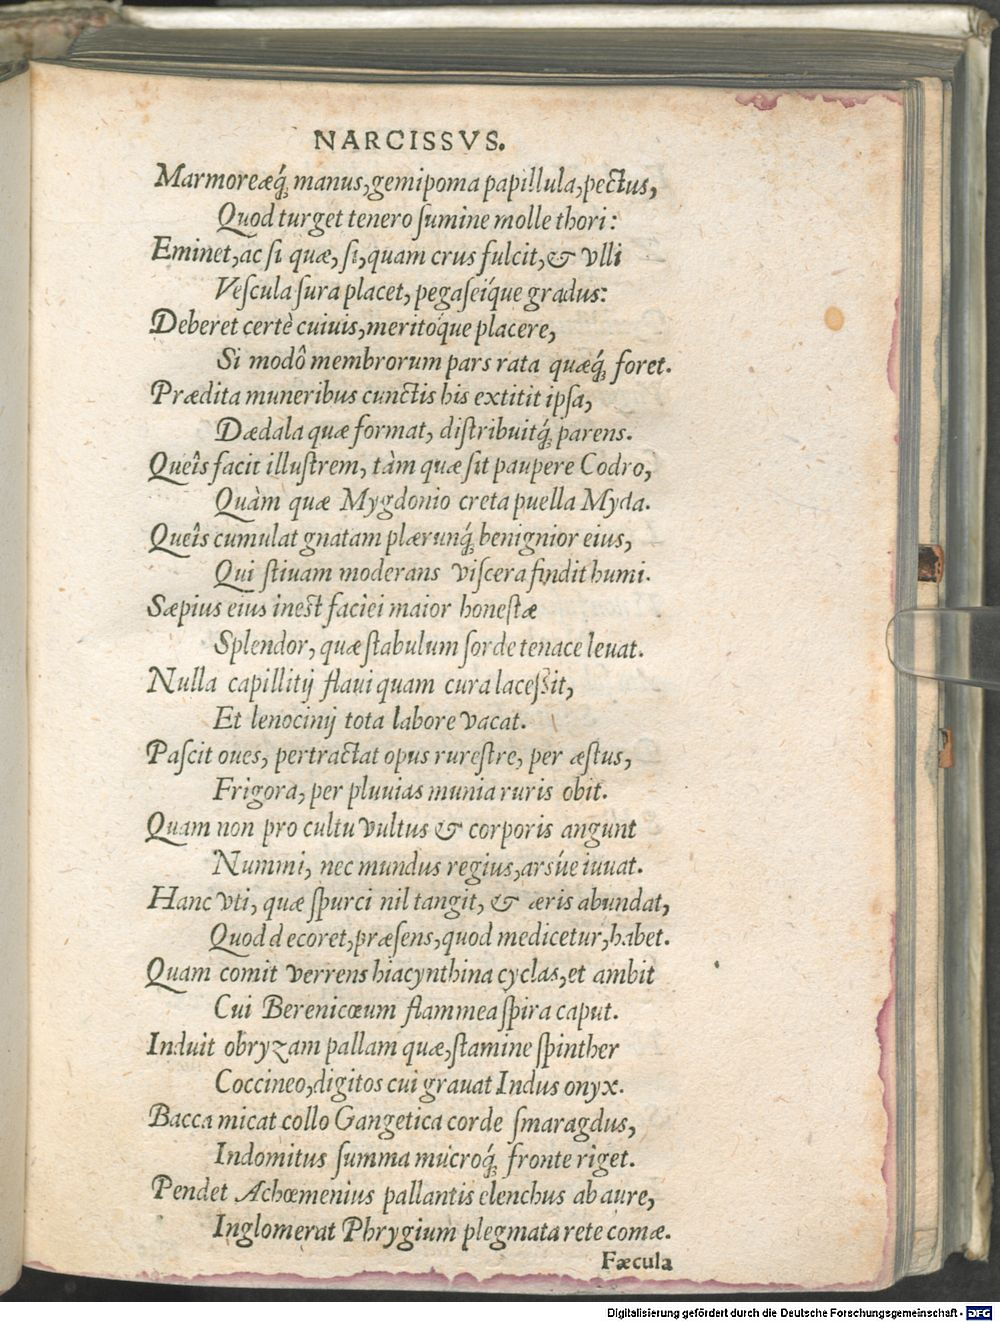 NARCISSVS.
Marmoreæq́; manus, gemipoma papillula, pectus,
Quod turget tenero ſumine molle thori:
Eminet, ac ſi quæ, ſi, quam crus fulcit, & vlli
Veſcula ſura placet, pegaſeíque gradus:
Deberet certè cuiuis, meritóque placere,
Si modô membrorum pars rata quæq́; foret.
Prædita muneribus cunctis his extitit ipſa,
Dædala quæ format, diſtribuitq́; parens.
Queîs facit illuſtrem, tàm quæ ſit paupere Codro,
Quàm quæ Mygdonio creta puella Myda.
Queîs cumulat gnatam plærunq́; benignior eius,
Qui ſtiuam moderans viſcera findit humi.
Sæpius eius ineſt faciei maior honeſtæ
Splendor, quæ ſtabulum ſorde tenace leuat.
Nulla capillitij flaui quam cura laceßit,
Et lenocinij tota labore vacat.
Paſcit oues, pertractat opus rureſtre, per æſtus,
Frigora, per pluuias munia ruris obit.
Quam non pro cultu vultus & corporis angunt
Nummi, nec mundus regius, arsúe iuuat.
Hanc vti, quæ ſpurci nil tangit, & æris abundat,
Quod d ecoret, præſens, quod medicetur, habet.
Quam comit verrens hiacynthina cyclas, et ambit
Cui Berenicœum flammea ſpira caput.
Induit obryzam pallam quæ, ſtamine ſpinther
Coccineo, digitos cui grauat Indus onyx.
Bacca micat collo Gangetica corde ſmaragdus,
Indomitus ſumma mucroq́; fronte riget.
Pendet Achœmenius pallantis elenchus ab aure,
Inglomerat Phrygium plegmata rete comæ.
Fæcula
Digitalisierung gefördert durch die Deutsche Forschungsgemeinschaft - DFG